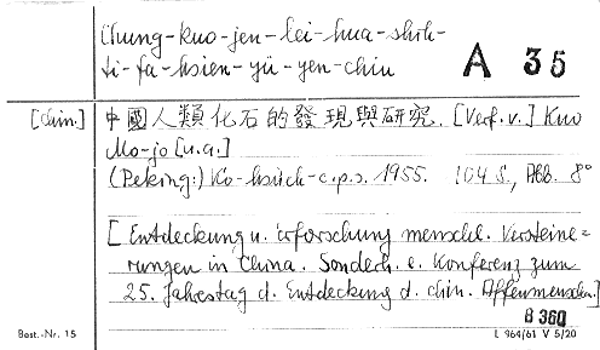 Chung-kuo-jen-lei-hua-shih-
ti-fa-hsien-yü-yen-chiu
A 35
[chin.] 中國人類化石的發現與研究. [Verf. v.] Kuo
Mo-jo [u.a.]
(Peking:) K'o-hsüeh-c.p.s. 1955. 104 S., Abb. 8°
[Entdeckung u. Erforschung menschl. Versteine=
rungen in China. Sonderh. e. Konferenz zum
25. Jahrestag d. Entdeckung d. chin. Affenmenschen.]
B 360
Best.-Nr. 15
L 964/61 V 5/20